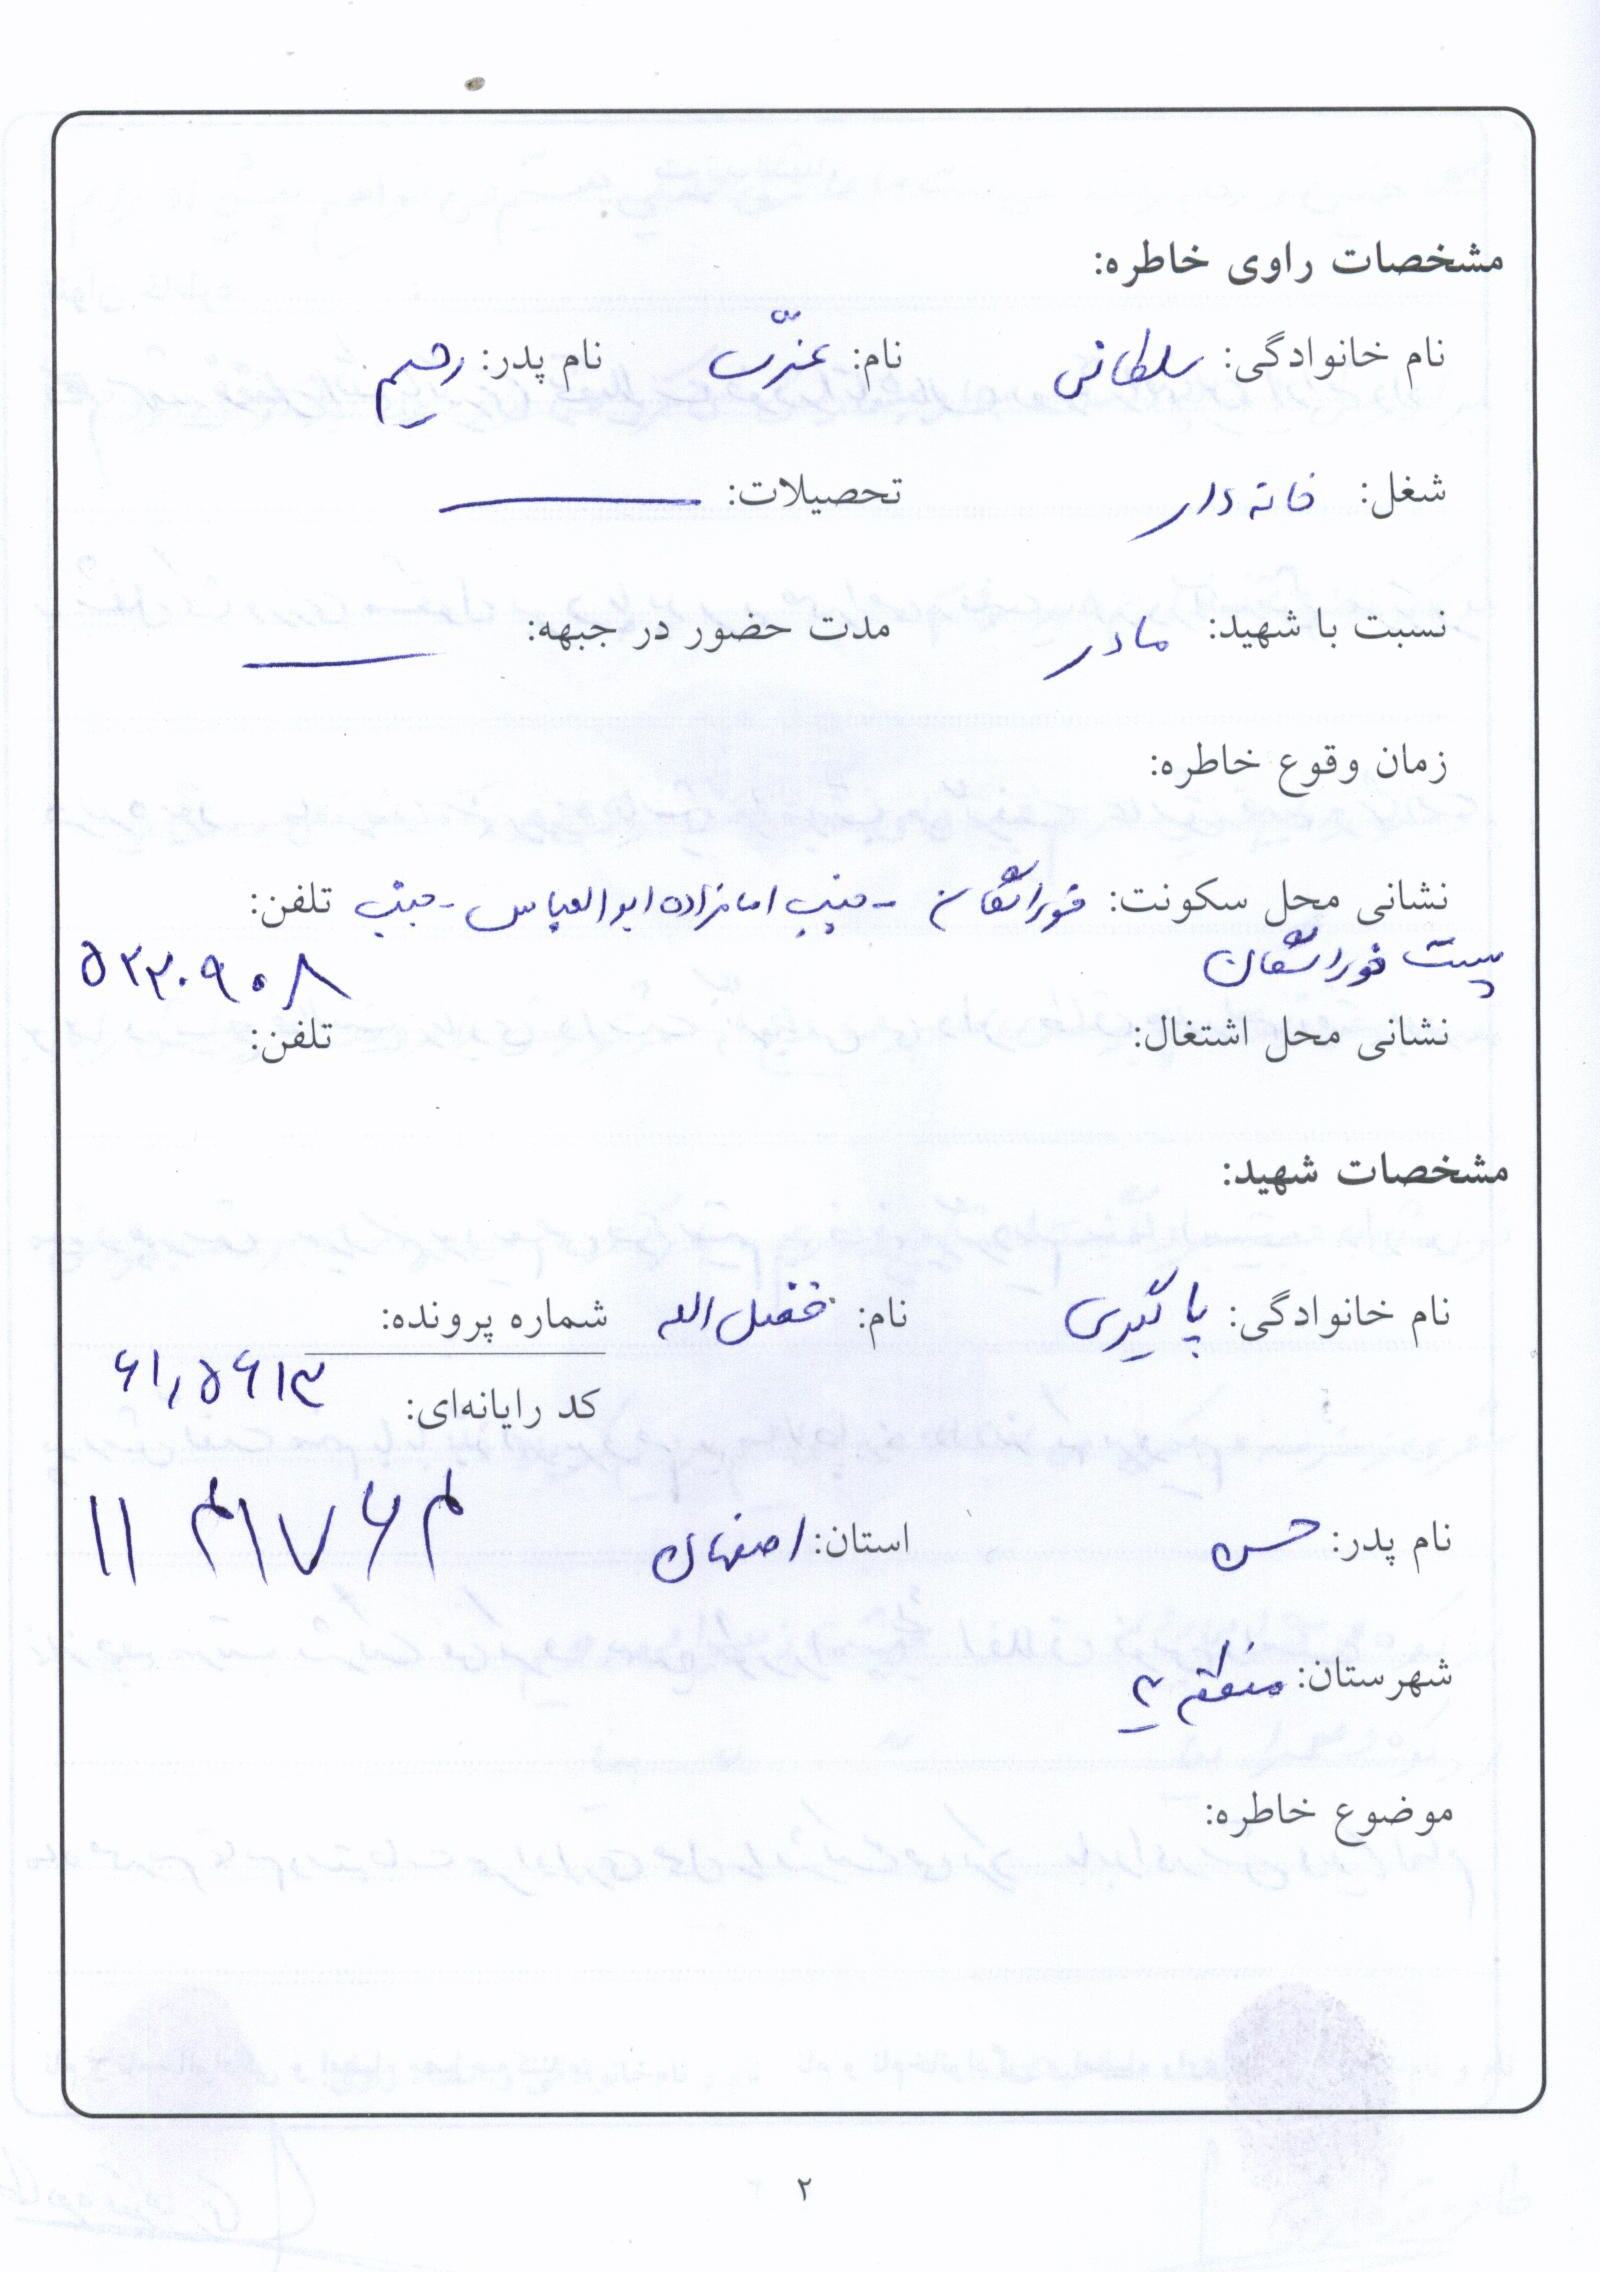 مشخصات راوی خاطره:
نام خانوادگی: سلطانی نام: عزّت نام پدر: رحیم
شغل: خانه دار تحصیلات: ـــــ
نسبت با شهید: مادر مدت حضور در جبهه: ـــــ
زمان وقوع خاطره:
نشانی محل سکونت: خوراسگان - جنب امامزاده ابوالعباس - جنب تلفن:
پست خوراسگان ۵۲۳۰۹۰۸
نشانی محل اشتغال: تلفن:
مشخصات شهید:
نام خانوادگی: پاگیری نام: فضل الله شماره پرونده:
۶۱٫۵۶۱۳
کد رایانه‌ای:
نام پدر: حسن استان: اصفهان ۱۱۳۱۷۶۳
شهرستان: منطقه ۳
موضوع خاطره:
۲